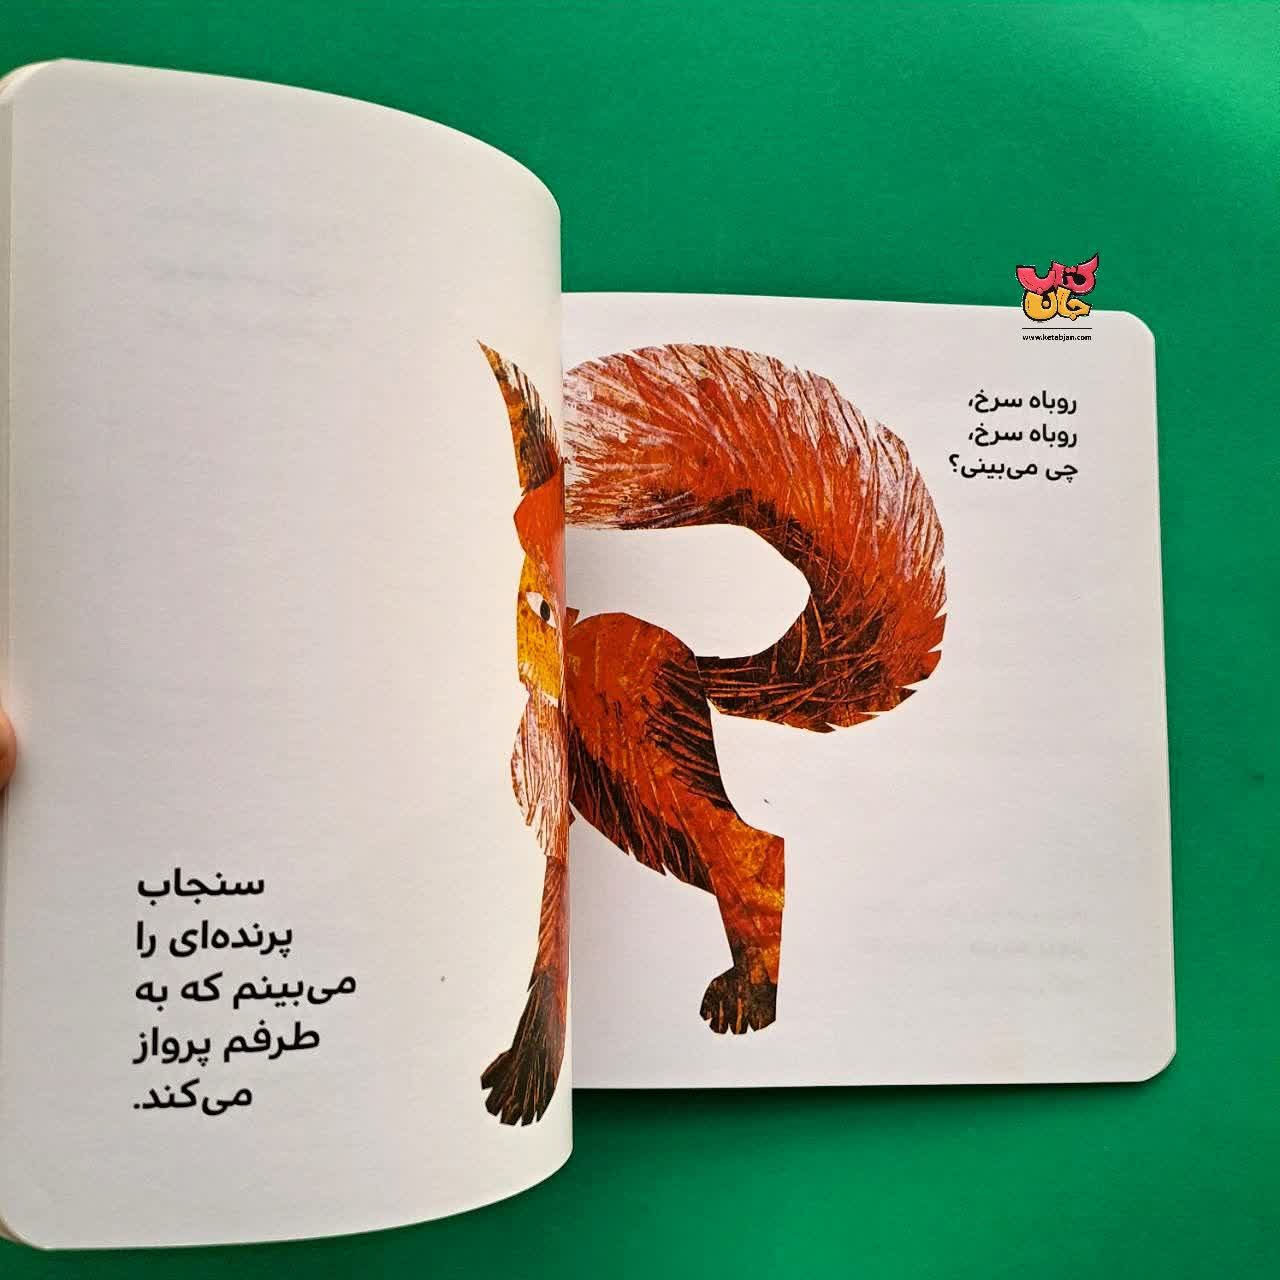 کتاب
جان
www.ketabjan.com
روباه سرخ،
روباه سرخ،
چی می‌بینی؟
سنجاب
پرنده‌ای را
می‌بینم که به
طرفم پرواز
می‌کند.